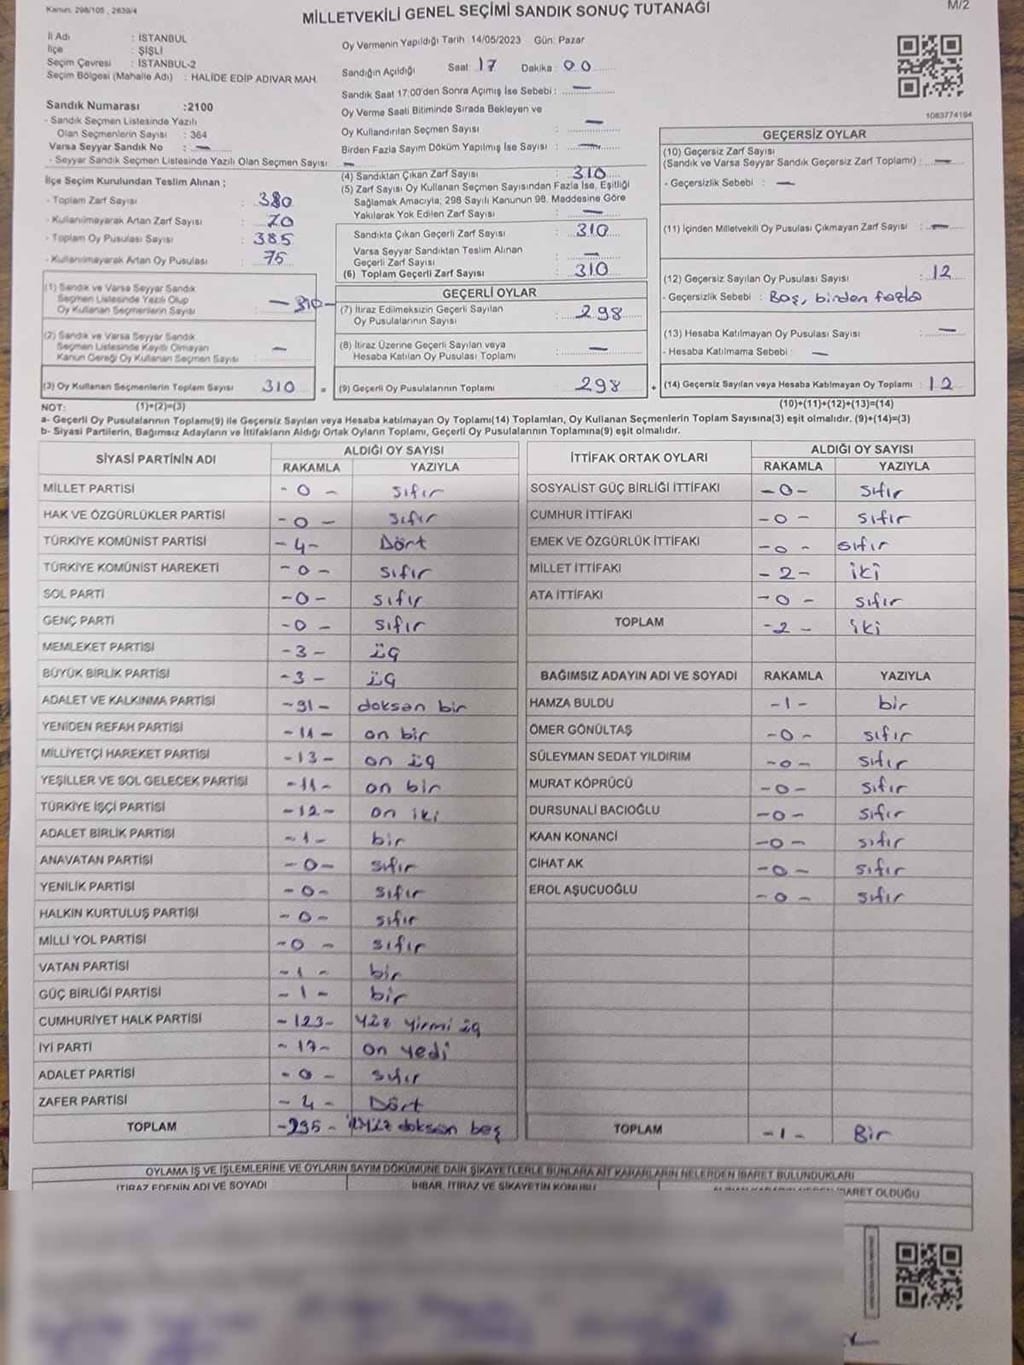 Kanun: 298/105 , 2839/4
MİLLETVEKİLİ GENEL SEÇİMİ SANDIK SONUÇ TUTANAĞI
M/2
İl Adı : İSTANBUL
İlçe : ŞİŞLİ
Seçim Çevresi : İSTANBUL-2
Seçim Bölgesi (Mahalle Adı) : HALİDE EDİP ADIVAR MAH.
Sandık Numarası :2100
- Sandık Seçmen Listesinde Yazılı
Olan Seçmenlerin Sayısı : 364
Varsa Seyyar Sandık No : —
- Seyyar Sandık Seçmen Listesinde Yazılı Olan Seçmen Sayısı : —
İlçe Seçim Kurulundan Teslim Alınan ;
- Toplam Zarf Sayısı : 380
- Kullanılmayarak Artan Zarf Sayısı : 70
- Toplam Oy Pusulası Sayısı : 385
- Kullanılmayarak Artan Oy Pusulası : 75
(1) Sandık ve Varsa Seyyar Sandık
Seçmen Listesinde Yazılı Olup
Oy Kullanan Seçmenlerin Sayısı : — 310 —
(2) Sandık ve Varsa Seyyar Sandık
Seçmen Listesinde Kayıtlı Olmayan
Kanun Gereği Oy Kullanan Seçmen Sayısı : —
(3) Oy Kullanan Seçmenlerin Toplam Sayısı : 310
Oy Vermenin Yapıldığı Tarih :14/05/2023 Gün: Pazar
Sandığın Açıldığı Saat :17 Dakika : 00
Sandık Saat 17:00'den Sonra Açımış İse Sebebi : —
Oy Verme Saati Bitiminde Sırada Bekleyen ve
Oy Kullandırılan Seçmen Sayısı : —
Birden Fazla Sayım Döküm Yapılmış İse Sayısı : —
(4) Sandıktan Çıkan Zarf Sayısı : 310
(5) Zarf Sayısı Oy Kullanan Seçmen Sayısından Fazla İse, Eşitliği
Sağlamak Amacıyla; 298 Sayılı Kanunun 98. Maddesine Göre
Yakılarak Yok Edilen Zarf Sayısı : —
Sandıkta Çıkan Geçerli Zarf Sayısı : 310
Varsa Seyyar Sandıktan Teslim Alınan
Geçerli Zarf Sayısı : —
(6) Toplam Geçerli Zarf Sayısı : 310
GEÇERLİ OYLAR
(7) İtiraz Edilmeksizin Geçerli Sayılan
Oy Pusulalarının Sayısı : 298
(8) İtiraz Üzerine Geçerli Sayılan veya
Hesaba Katılan Oy Pusulası Toplamı : —
= (9) Geçerli Oy Pusulalarının Toplamı : 298
1083774194
GEÇERSİZ OYLAR
(10) Geçersiz Zarf Sayısı
(Sandık ve Varsa Seyyar Sandık Geçersiz Zarf Toplamı) : —
- Geçersizlik Sebebi : —
(11) İçinden Milletvekili Oy Pusulası Çıkmayan Zarf Sayısı : —
(12) Geçersiz Sayılan Oy Pusulası Sayısı : 12
- Geçersizlik Sebebi : Boş, birden fazla
(13) Hesaba Katılmayan Oy Pusulası Sayısı : —
- Hesaba Katılmama Sebebi : —
+ (14) Geçersiz Sayılan veya Hesaba Katılmayan Oy Toplamı : 12
NOT: (1)+(2)=(3) (10)+(11)+(12)+(13)=(14)
a- Geçerli Oy Pusulalarının Toplamı(9) ile Geçersiz Sayılan veya Hesaba katılmayan Oy Toplamı(14) Toplamları, Oy Kullanan Seçmenlerin Toplam Sayısına(3) eşit olmalıdır. (9)+(14)=(3)
b- Siyasi Partilerin, Bağımsız Adayların ve İttifakların Aldığı Ortak Oyların Toplamı, Geçerli Oy Pusulalarının Toplamına(9) eşit olmalıdır.
SİYASİ PARTİNİN ADI ALDIĞI OY SAYISI
RAKAMLA YAZIYLA
MİLLET PARTİSİ - 0 - sıfır
HAK VE ÖZGÜRLÜKLER PARTİSİ - 0 - sıfır
TÜRKİYE KOMÜNİST PARTİSİ - 4 - Dört
TÜRKİYE KOMÜNİST HAREKETİ - 0 - sıfır
SOL PARTİ - 0 - sıfır
GENÇ PARTİ - 0 - sıfır
MEMLEKET PARTİSİ - 3 - üç
BÜYÜK BİRLİK PARTİSİ - 3 - üç
ADALET VE KALKINMA PARTİSİ - 91 - doksan bir
YENİDEN REFAH PARTİSİ - 11 - on bir
MİLLİYETÇİ HAREKET PARTİSİ - 13 - on üç
YEŞİLLER VE SOL GELECEK PARTİSİ - 11 - on bir
TÜRKİYE İŞÇİ PARTİSİ - 12 - on iki
ADALET BİRLİK PARTİSİ - 1 - bir
ANAVATAN PARTİSİ - 0 - sıfır
YENİLİK PARTİSİ - 0 - sıfır
HALKIN KURTULUŞ PARTİSİ - 0 - sıfır
MİLLİ YOL PARTİSİ - 0 - sıfır
VATAN PARTİSİ - 1 - bir
GÜÇ BİRLİĞİ PARTİSİ - 1 - bir
CUMHURİYET HALK PARTİSİ - 123 - yüz yirmi üç
İYİ PARTİ - 17 - on yedi
ADALET PARTİSİ - 0 - sıfır
ZAFER PARTİSİ - 4 - Dört
TOPLAM - 295 - ikiyüz doksan beş
İTTİFAK ORTAK OYLARI ALDIĞI OY SAYISI
RAKAMLA YAZIYLA
SOSYALİST GÜÇ BİRLİĞİ İTTİFAKI - 0 - sıfır
CUMHUR İTTİFAKI - 0 - sıfır
EMEK VE ÖZGÜRLÜK İTTİFAKI - 0 - sıfır
MİLLET İTTİFAKI - 2 - iki
ATA İTTİFAKI - 0 - sıfır
TOPLAM - 2 - iki
BAĞIMSIZ ADAYIN ADI VE SOYADI RAKAMLA YAZIYLA
HAMZA BULDU - 1 - bir
ÖMER GÖNÜLTAŞ - 0 - sıfır
SÜLEYMAN SEDAT YILDIRIM - 0 - sıfır
MURAT KÖPRÜCÜ - 0 - sıfır
DURSUNALİ BACIOĞLU - 0 - sıfır
KAAN KONANCİ - 0 - sıfır
CİHAT AK - 0 - sıfır
EROL AŞUCUOĞLU - 0 - sıfır
TOPLAM - 1 - Bir
OYLAMA İŞ VE İŞLEMLERİNE VE OYLARIN SAYIM DÖKÜMÜNE DAİR ŞİKAYETLERLE BUNLARA AİT KARARLARIN NELERDEN İBARET BULUNDUKLARI
İTİRAZ EDENİN ADI VE SOYADI İHBAR, İTİRAZ VE ŞİKAYETİN KONUSU İBARET OLDUĞU